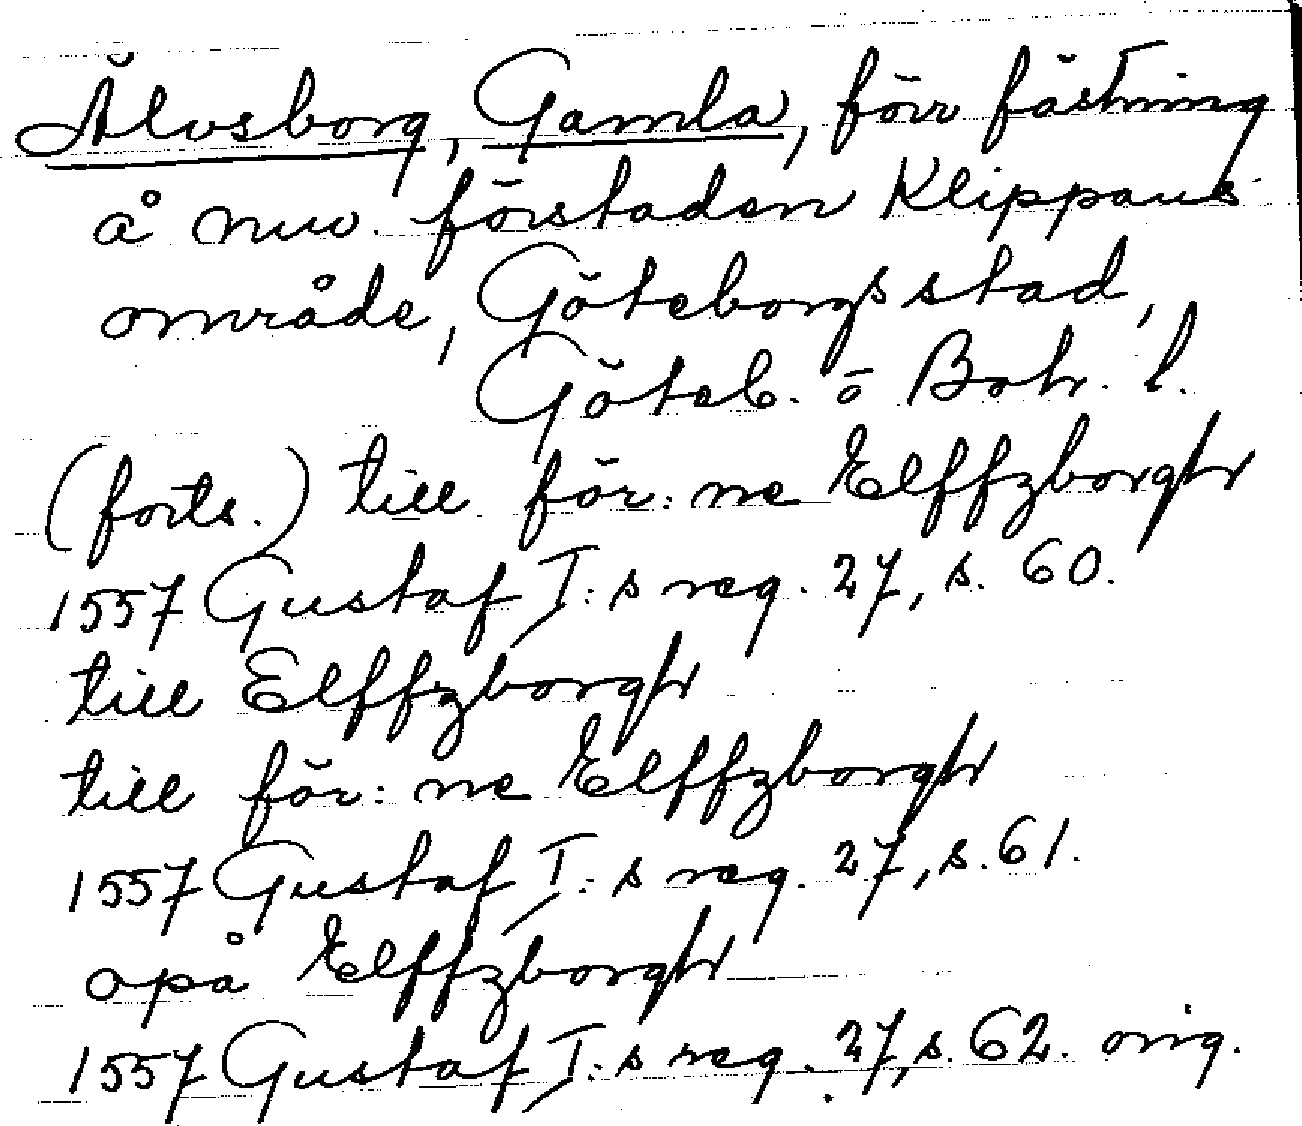 Älvsborg, Gamla, förr fästning
å nuv. förstaden Klippans
område, Göteborgs stad,
Göteb. o Boh. l.
(forts.) till för: ne Elffzborgh
1557 Gustaf I: s reg. 27, s. 60.
till Elffzborgh
till för: ne Elffzborgh
1557 Gustaf I: s reg. 27, s. 61.
opå Elffzborgh
1557 Gustaf I: s reg. 27, s. 62. orig.